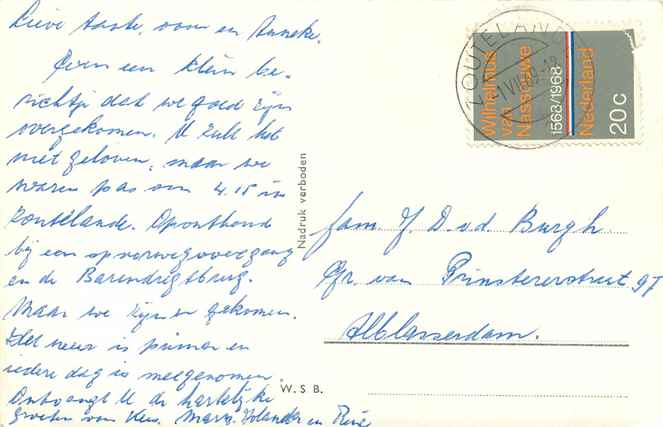 Lieve tante, oom en Anneke.
Even een klein be-
richtje dat we goed zijn
overgekomen. U zult het
niet geloven, maar we
waren pas om 4.15 in
Zoutelande. Oponthoud
bij een spoorwegovergang
en de Barendregtbrug.
Maar we zijn er gekomen.
Het weer is prima en
iedere dag is meegenomen.
Ontvangt U de hartelijke
groeten van Kees, Mary, Yolanda en René
Nadruk verboden
W. S. B.
ZOUTELANDE
Wilhelmus
van
Nassouwe
1568/1968
Nederland
20c
fam. J. D. v.d. Burgh.
Gr. van Prinstererstraat 97
Alblasserdam.